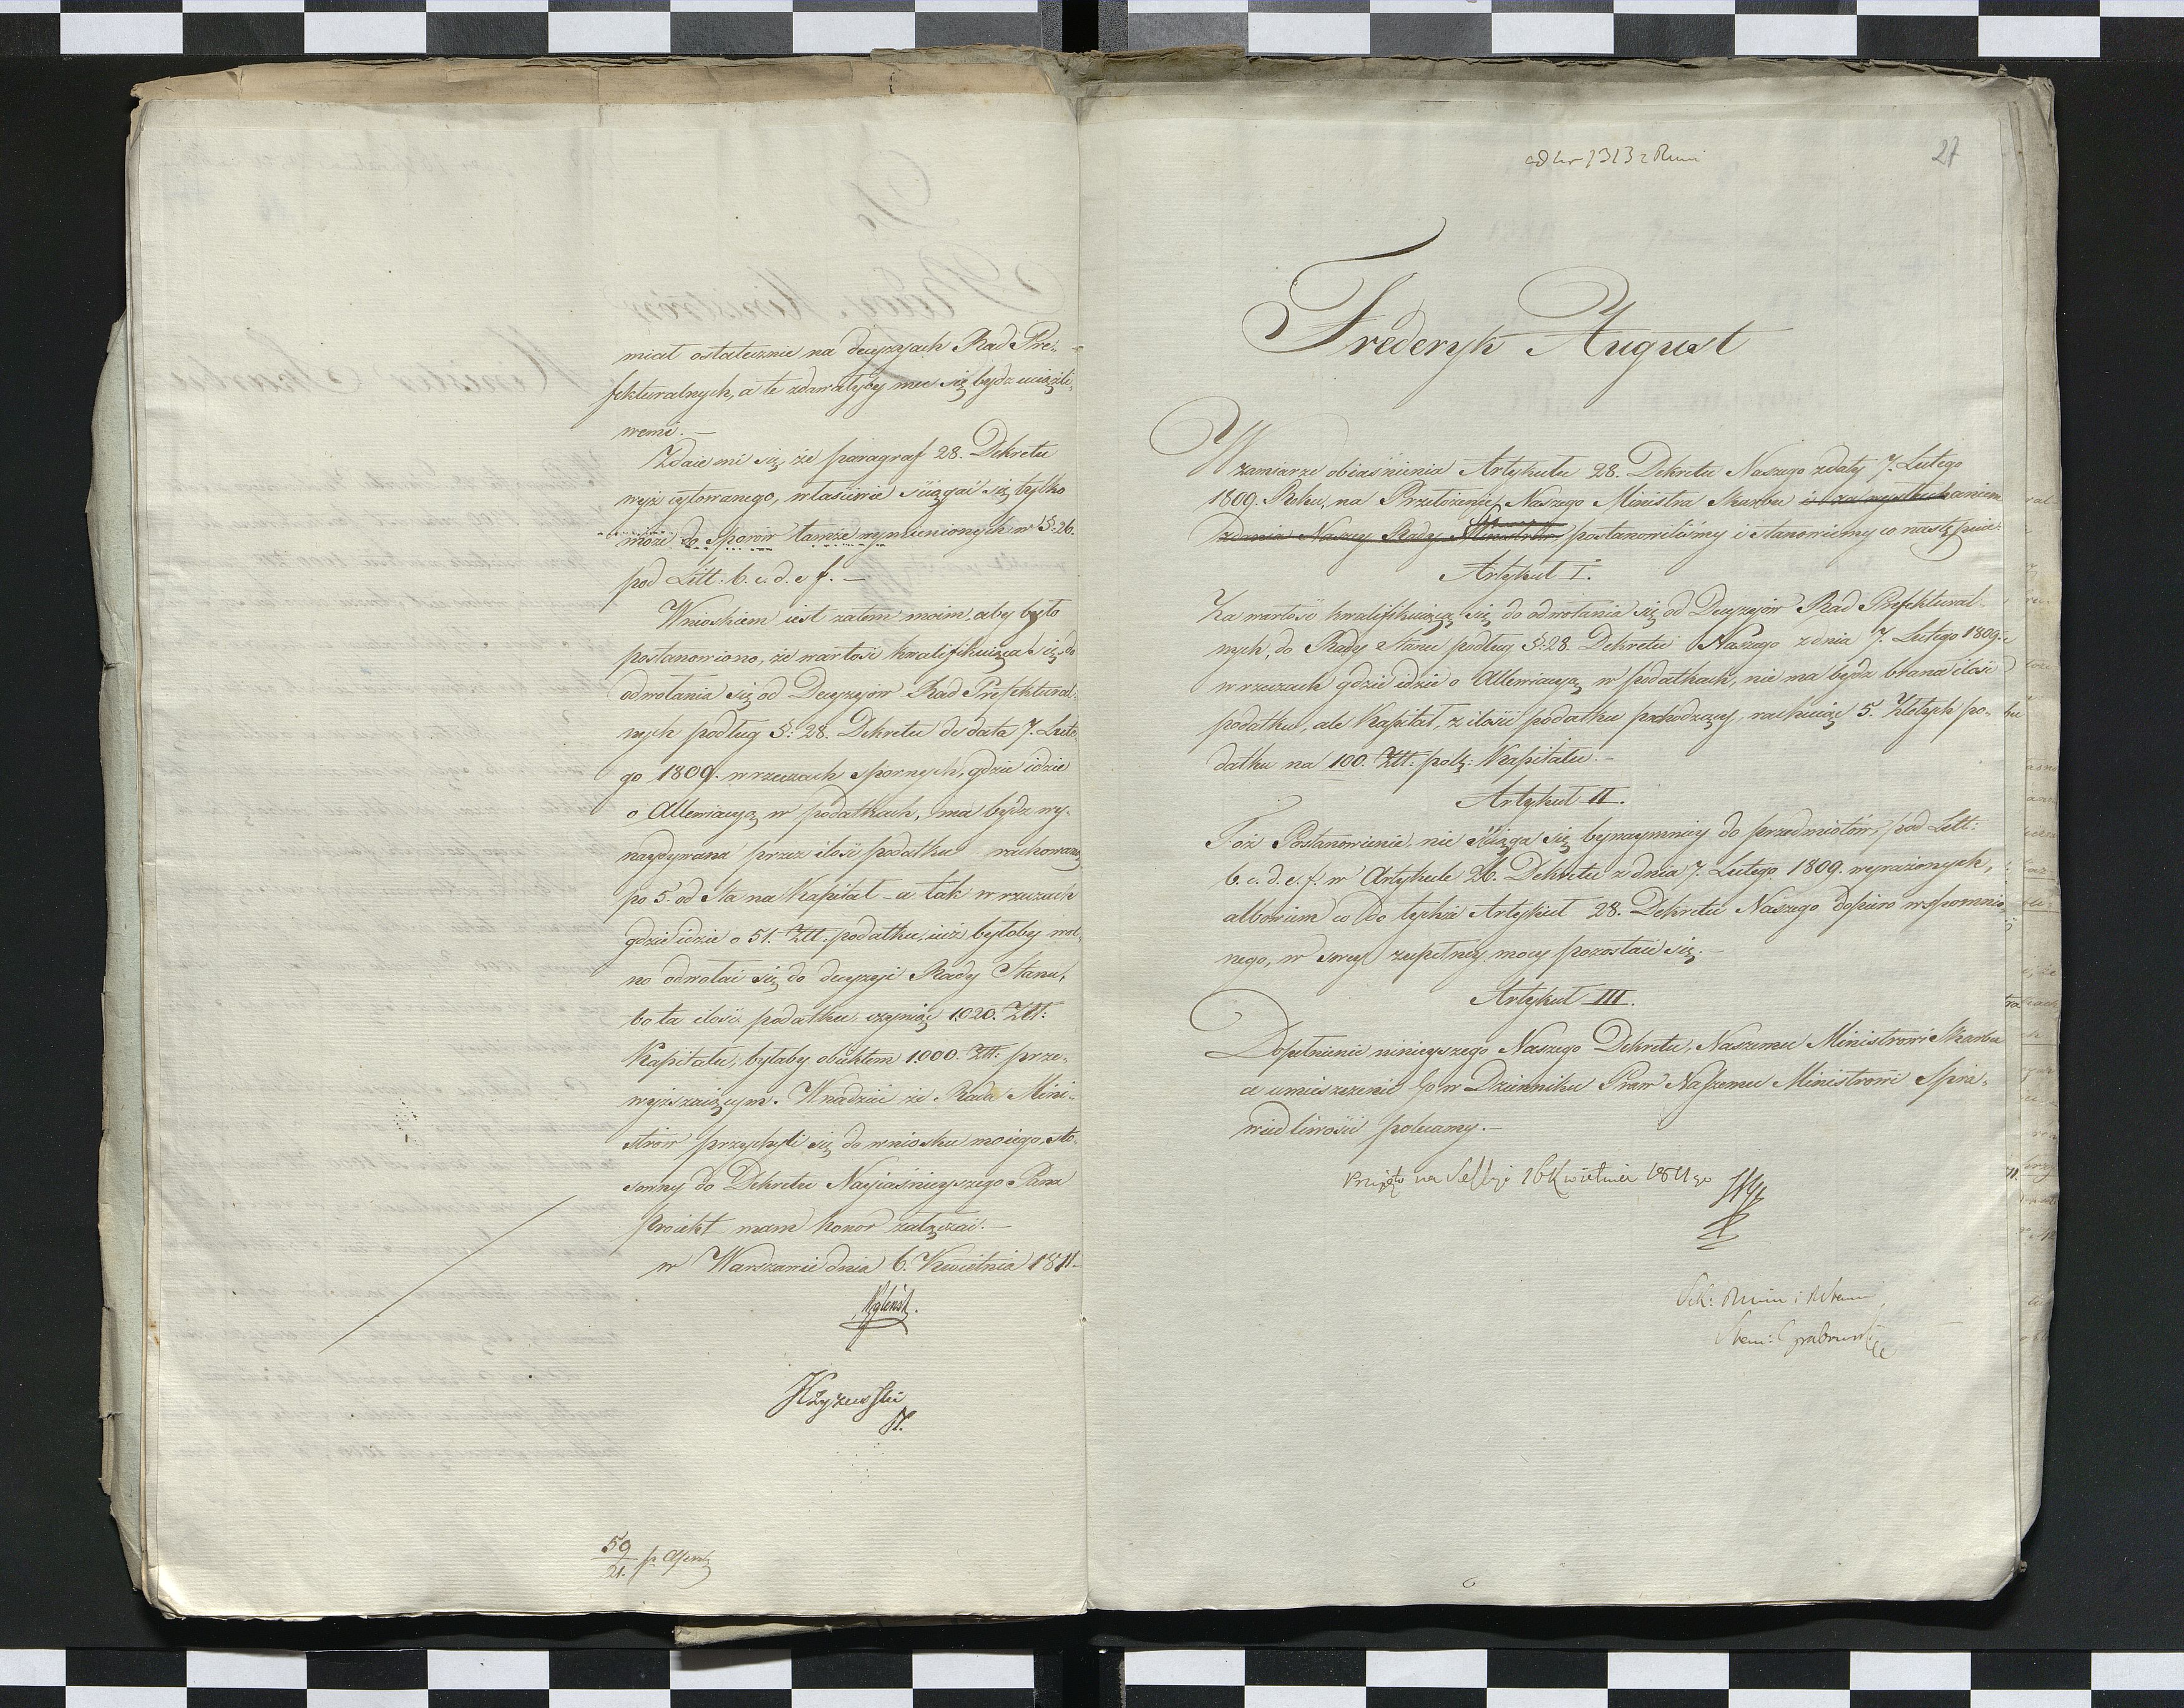 miał ostatecznie na decyzyach Rad Pre-
fekturalnych, a te zdawałyby mu się bydź uciążli-
wemi. —
Zdaie mi się, że paragraf 28. Dekretu
wyż cytowanego, właściwie ściągać się tylko
może do sporów tamże wymienionych w §. 26.
pod Litt: b. c. d. e f. —
Wnioskiem iest zatem moim, aby było
postanowiono, że wartość kwalifikuiąca się do
odwołania się od Decyzyów Rad Prefektural-
nych podług §: 28. Dekretu de data 7. Lute-
go 1809. w rzeczach spornych, gdzie idzie
o Allewiacyą w podatkach, ma bydź wy-
naydywana przez ilość podatku rachowaną
po 5. od Sta na Kapitał – a tak w rzeczach
gdzie idzie o 51. Złł: podatku, iuż byłoby wol-
no odwołać się do decyzyi Rady Stanu,
bo ta ilość podatku, czyniąc 1020. Złł:
Kapitału, byłaby obiektem 1000. Złł: prze-
wyższaiącym. W nadziei że Rada Mini-
strów przychyli się do wniosku moiego, sto-
sowny do Dekretu Nayiaśnieyszego Pana
Proiekt mam honor załączać. —
w Warszawie dnia 6. Kwietnia 1811.
59
21.
27
Fréderyk August
W zamiarze obiaśnienia Artykułu 28. Dekretu Naszego z daty 7. Lutego
1809. Roku, na Przełożenie Naszego Ministra Skarbu i za wysłuchaniem
zdania Naszey Rady postanowiliśmy i stanowiemy co następuie:
Artykuł I.
Za wartość kwalifikuiącą się do odwołania się od Decyzyów Rad Prefektural-
nych, do Rady Stanu podług §: 28. Dekretu Naszego z dnia 7. Lutego 1809.
w rzeczach gdzie idzie o Allewiacyą w podatkach, nie ma bydź brana ilość
podatku, ale Kapitał, z ilości podatku pochodzący, rachuiąc 5. Złotych po-
datku na 100. Złł: pols: Kapitału. —
Artykuł II.
Toż Postanowienie, nie ściąga się bynaymniey do przedmiotów, pod Litt:
b. c. d. e. f. w Artykule 26. Dekretu z dnia 7. Lutego 1809. wyrażonych,
albowiem co do tychże Artykuł 28. Dekretu Naszego dopiero wspomnio-
nego, w swey zupełney mocy pozostaie się. —
Artykuł III.
Dopełnienie ninieyszego Naszego Dekretu, Naszemu Ministrowi Skarbu
a umieszczenie go w Dzienniku Praw Naszemu Ministrowi Spra-
wiedliwości polecamy. —
Przyięto na Sessyi 16 Kwietnia 1811 go
Grabowski